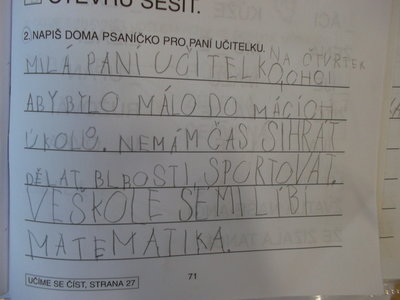 OTEVŘU SEŠIT.
2. NAPIŠ DOMA PSANÍČKO PRO PANÍ UČITELKU.
NA ČTVRTEK
MILÁ PANÍ UČITELKO,
ABY BYLO MÁLO DOMÁCÍCH
ÚKOLŮ. NEMÁM ČAS SIHRÁT
DĚLAT BLBOSTI, SPORTOVAT.
VEŠKOLE SEMI LÍBÍ
MATEMATIKA.
UČÍME SE ČÍST, STRANA 27
71